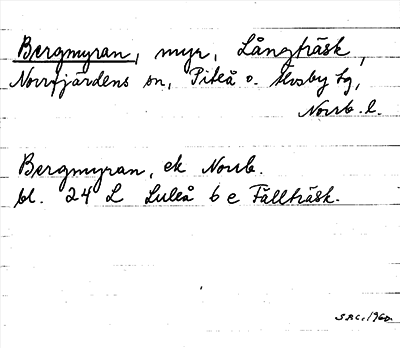 Bergmyran, myr, Långträsk,
Norrfjärdens sn, Piteå o. Älvsby tg,
Norrb. l.
Bergmyran, ek Norrb.
bl. 24 L Luleå 6 e Fällträsk.
1960